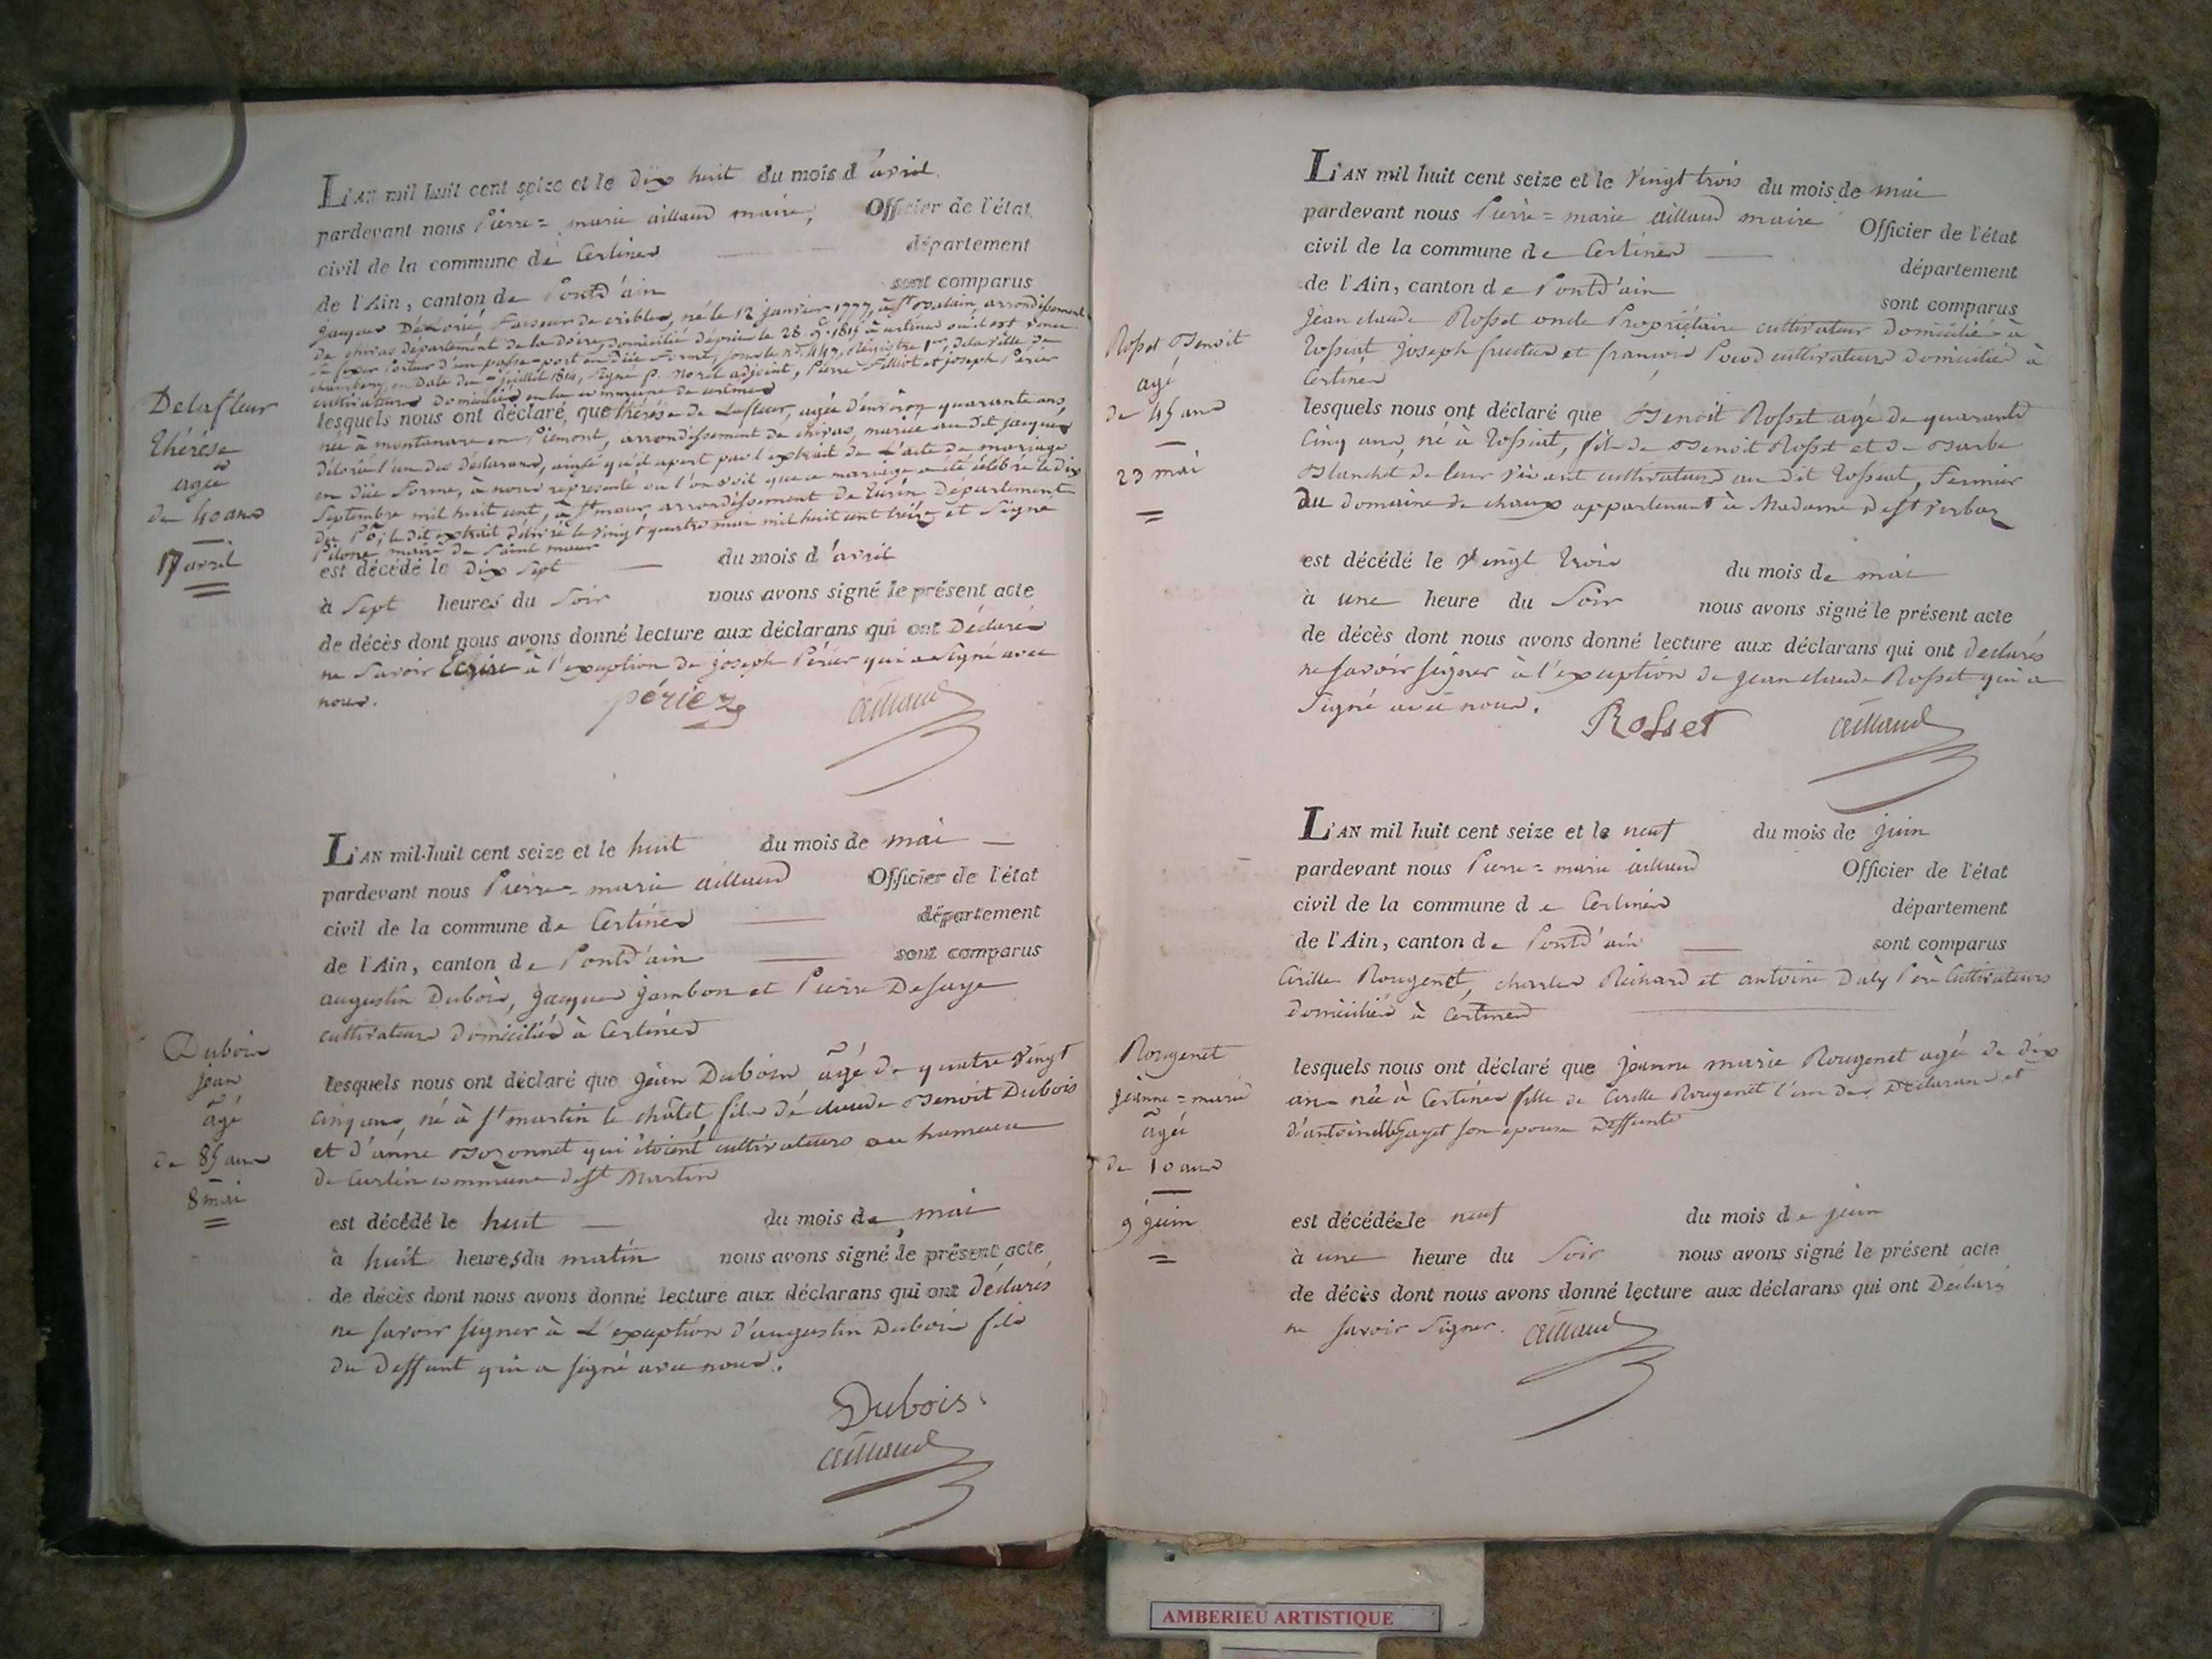 L'AN mil huit cent seize et le dix huit du mois d'avril
pardevant nous Pierre = marie aillaud maire, Officier de l'état
civil de la commune de Certines département
de l'Ain, canton de Pontd'ain sont comparus
jacques Délorié, faiseur de cribles, né le 12 janvier 1777, à St arrondissement
de chivas département de la Doire, domicilié depuis le 28 à certines où il est venu
se fixer porteur d'un passe=port en due forme, sous le n.o 447, Régistre 1er, de la ville de
chambery, en date du juillet 1814, signé p. Noril adjoint, Pierre Filliot et joseph Périer
cultivateurs domiciliés en la commune de certines
Delafleur
thérèse
agée
de 40 ans
17 avril
lesquels nous ont déclaré, que thérèse de Lafleur, agée d'environ quarante ans,
née à montanare en Piémont, arrondissement de chivas, mariée au dit jacques
délorié l'un des déclarans, ainsi qu'il apert par l'extrait de L'acte de mariage
en due forme, à nous representé où l'on voit que ce mariage a été célébré le dix
Septembre mil huit cent, à St maur arrondissement de turin Département
du Pô, le dit extrait délivré le vingt quatre mai mil huit cent treize et Signé
Pilone maire de Saint maur
est décédé le dix sept du mois d'avril
à Sept heures du Soir nous avons signé le présent acte
de décès dont nous avons donné lecture aux déclarans qui ont Déclarés
ne Savoir Ecrire à l'exception de joseph Périer qui a Signé avec
nous.
périer
aillaud
L'AN mil huit cent seize et le huit du mois de mai
pardevant nous Pierre = marie aillaud Officier de l'état
civil de la commune de Certines département
de l'Ain, canton de Pontd'ain sont comparus
augustin Dubois, jacques jambon et Pierre Desaye
cultivateurs domiciliés à Certines
Dubois
jean
agé
de 85 ans
8 mai
lesquels nous ont déclaré que jean Dubois agé de quatre vingt
cinq ans, né à St martin le châtel, fils de claude Benoit Dubois
et d'anne Bozonnet qui étoient cultivateurs au hameau
de Curlin commune de St Martin
est décédé le huit du mois de mai
à huit heures du matin nous avons signé le présent acte
de décès dont nous avons donné lecture aux déclarans qui ont Déclarés
ne savoir signer à L'exception d'augustin Dubois fils
du deffunt qui a signé avec nous.
Dubois
aillaud
L'AN mil huit cent seize et le vingt trois du mois de mai
pardevant nous Pierre = marie aillaud maire Officier de l'état
civil de la commune de Certines département
de l'Ain, canton de Pontd'ain sont comparus
jean claude Rosset oncle Propriétaire cultivateur domicilié à
tossiat, joseph fructus et françois Pocod cultivateurs domiciliés à
Certines
Rosset Benoit
agé
de 45 ans
23 mai
lesquels nous ont déclaré que Benoit Rosset agé de quarante
Cinq ans, né à tossiat, fils de Benoit Rosset et de Barbe
Blanchet de leur vivant cultivateurs au dit tossiat, Fermier
du domaine de chaux appartenant à Madame de St Verbas
est décédé le vingt trois du mois de mai
à une heure du Soir nous avons signé le présent acte
de décès dont nous avons donné lecture aux déclarans qui ont déclarés
ne savoir signer à l'exception de jean claude Rosset qui a
Signé avec nous.
Rosset
aillaud
L'AN mil huit cent seize et le neuf du mois de juin
pardevant nous Pierre = marie aillaud Officier de l'état
civil de la commune de Certines département
de l'Ain, canton de Pontd'ain sont comparus
Cirille Rougenet, charles Reinard et antoine Daly Père Cultivateurs
domiciliés à Certines
Rougenet
jeanne = marie
agée
de 10 ans
9 juin
lesquels nous ont déclaré que jeanne marie Rougenet agée de dix
ans née à Certines fille de Cirille Rougenet l'un des Déclarans et
d'antoinette Gayet son epouse Deffunte
est décédée le neuf du mois de juin
à une heure du Soir nous avons signé le présent acte
de décès dont nous avons donné lecture aux déclarans qui ont Déclarés
ne savoir Signer.
aillaud
AMBERIEU ARTISTIQUE